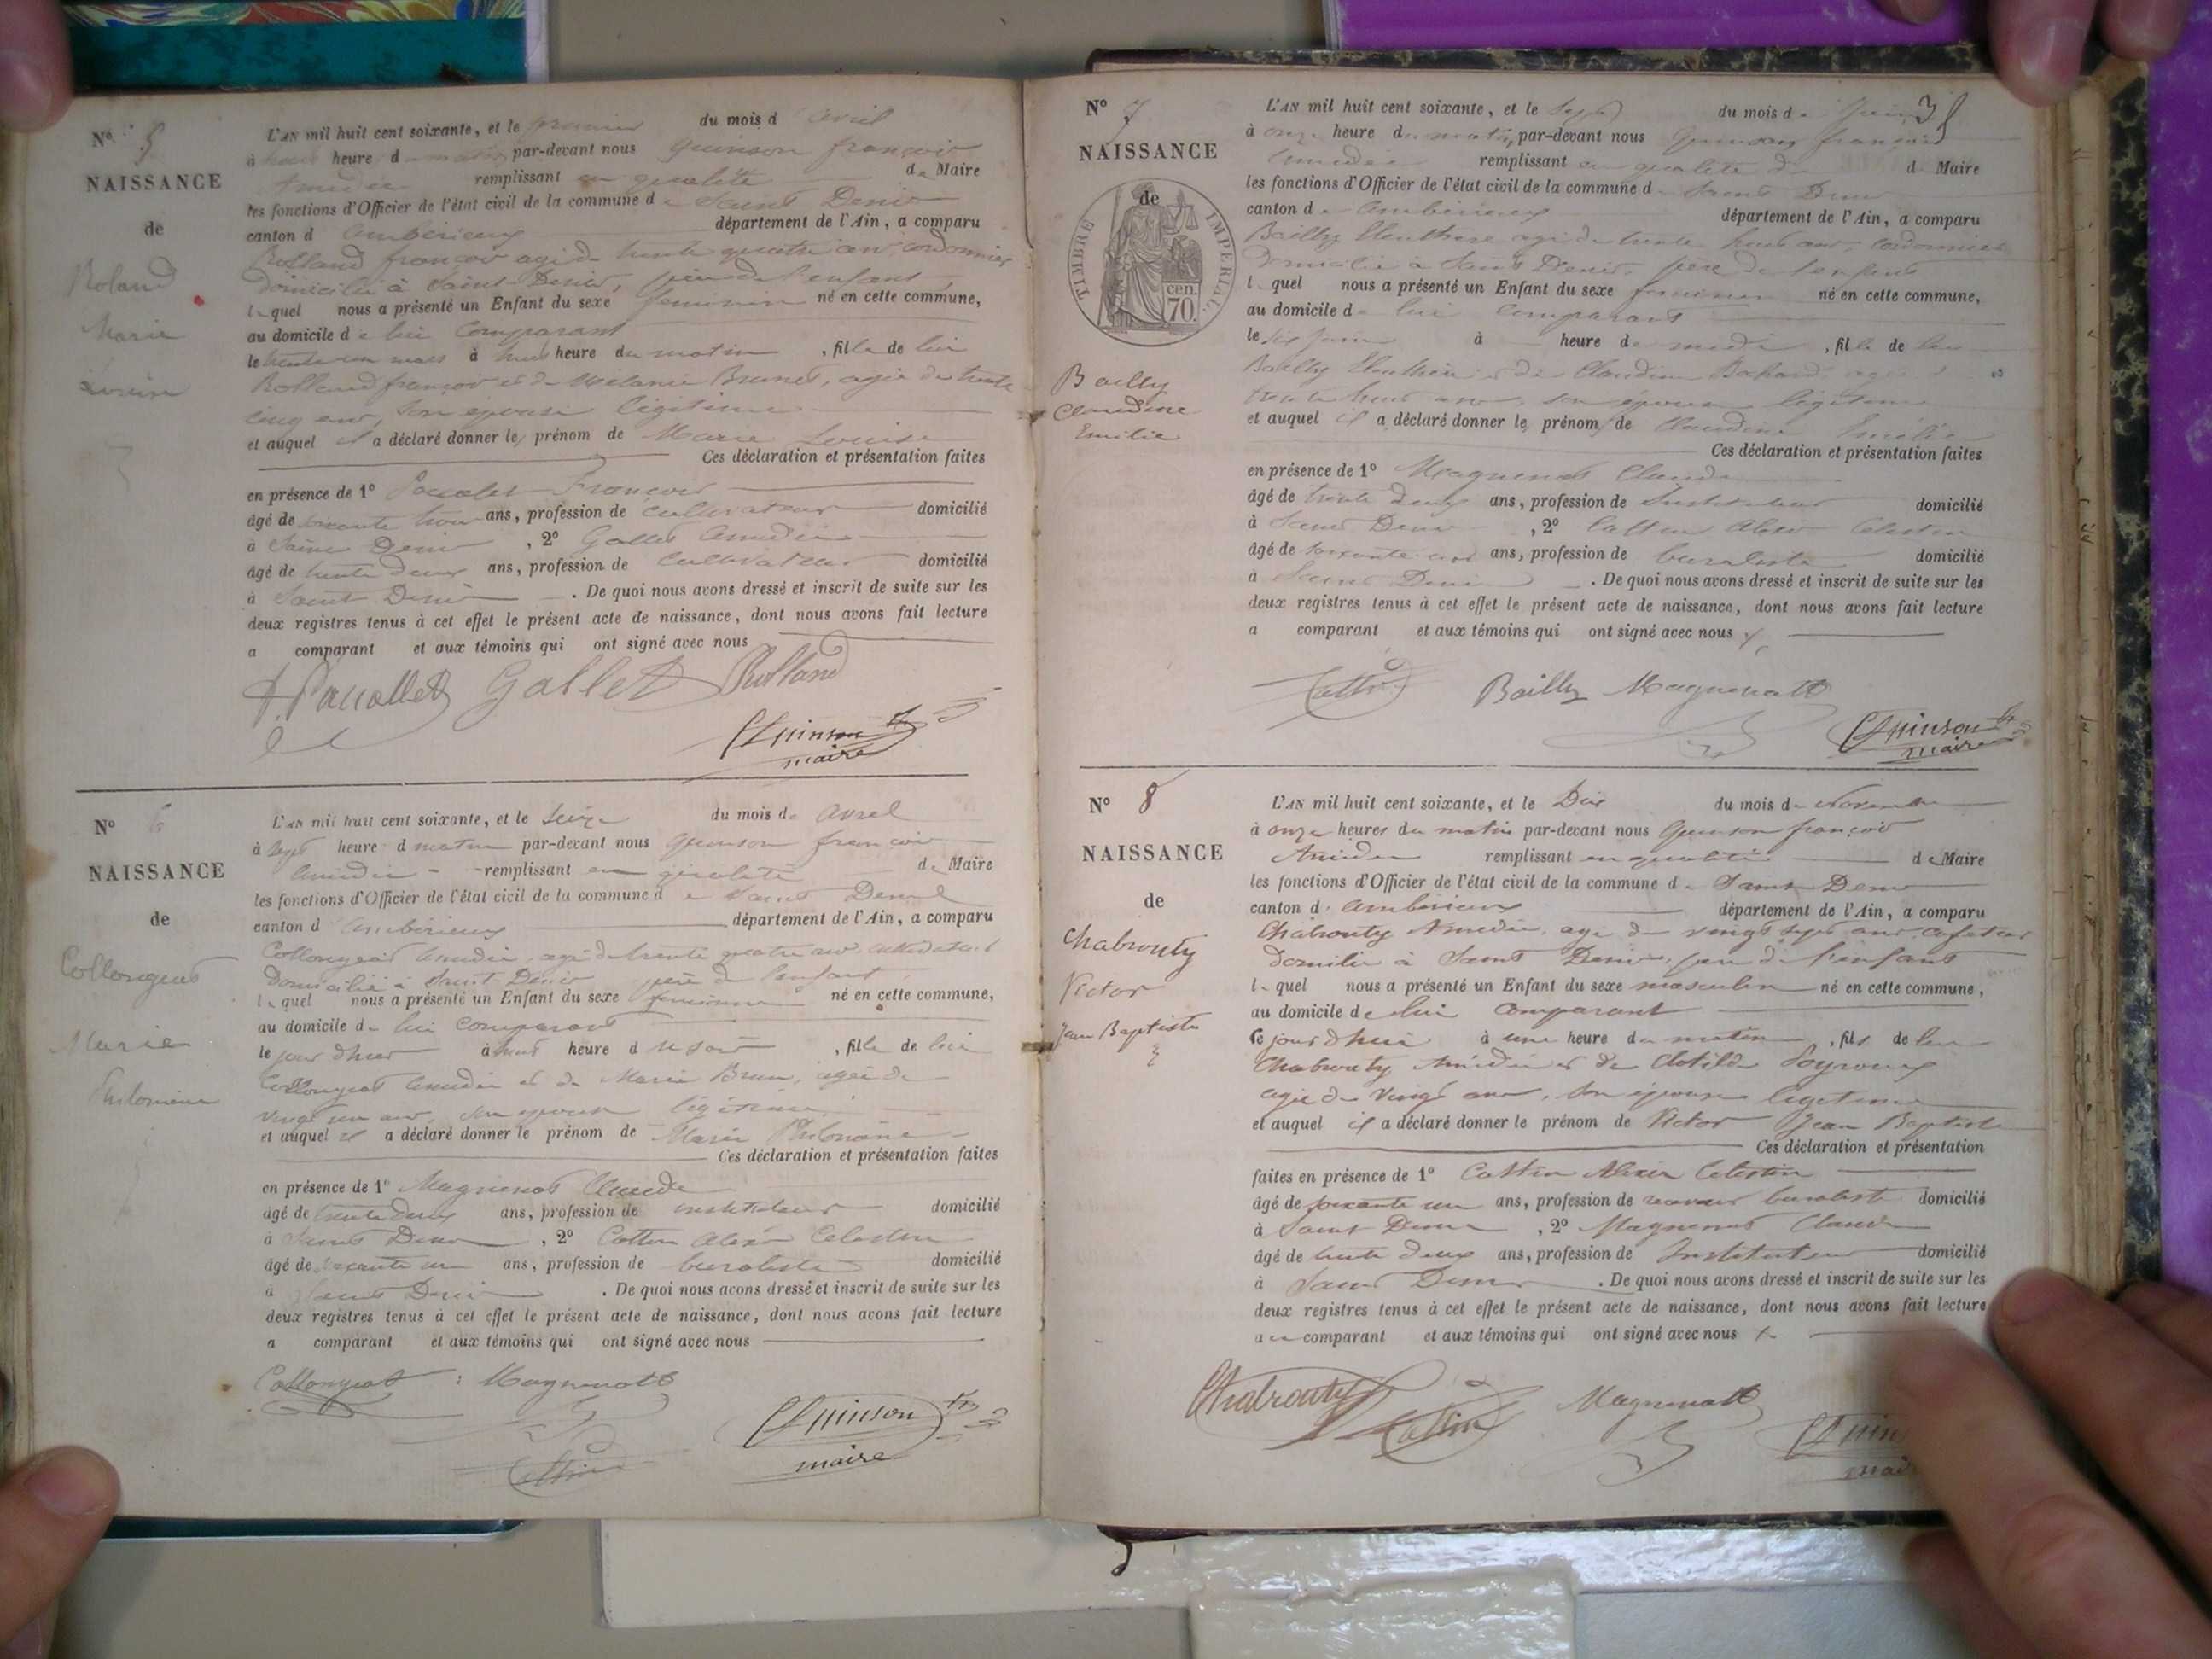 N° 5
NAISSANCE
de
Roland
Marie
Louise
L'AN mil huit cent soixante, et le premier du mois d avril
à heure d matin par-devant nous quinson françois
Amédée remplissant en qualité de Maire
les fonctions d'Officier de l'état civil de la commune de Saint Denis
canton d ambérieux département de l'Ain, a comparu
Rolland françois agé de trente quatre ans, cordonnier
domicilié à Saint Denis, père de l'enfant
lequel nous a présenté un Enfant du sexe feminin né en cette commune,
au domicile de lui Comparant
le trente un mars à heure du matin , fille de lui
Rolland françois et de Mélanie Brunet, agée de trente
cinq ans, son épouse légitime
et auquel il a déclaré donner le prénom de Marie Louise
Ces déclaration et présentation faites
en présence de 1° François
âgé de soixante trois ans, profession de cultivateur domicilié
à Saint Denis , 2° Gallet Amédée
âgé de trente deux ans, profession de Cultivateur domicilié
à Saint Denis . De quoi nous avons dressé et inscrit de suite sur les
deux registres tenus à cet effet le présent acte de naissance, dont nous avons fait lecture
a comparant et aux témoins qui ont signé avec nous
Gallet Rolland
Quinson
maire
N° 6
NAISSANCE
de
Collongeat
Marie
Philomène
L'AN mil huit cent soixante, et le Seize du mois de avril
à sept heure d matin par-devant nous quinson françois
Amédée remplissant en qualité de Maire
les fonctions d'Officier de l'état civil de la commune de Saint Denis
canton d ambérieux département de l'Ain, a comparu
Collongeat Amédée, agé de trente quatre ans, cultivateur
domicilié à Saint Denis père de l'enfant
lequel nous a présenté un Enfant du sexe feminin né en cette commune,
au domicile de lui comparant
le jour d'hier à huit heure du soir , fille de lui
Collongeat Amédée et de Marie Brun, agée de
vingt un ans, son épouse légitime
et auquel il a déclaré donner le prénom de Marie Philomène
Ces déclaration et présentation faites
en présence de 1° Magnenot Claude
âgé de trente deux ans, profession de instituteur domicilié
à Saint Denis , 2° Cottin Alexis Celestin
âgé de soixante un ans, profession de buraliste domicilié
à Saint Denis . De quoi nous avons dressé et inscrit de suite sur les
deux registres tenus à cet effet le présent acte de naissance, dont nous avons fait lecture
a comparant et aux témoins qui ont signé avec nous
Collongeat Magnenott
Cottin
Quinson
maire
N° 7
NAISSANCE
de
TIMBRE IMPERIAL
70 cen.
Bailly
Claudine
Emilie
L'AN mil huit cent soixante, et le Sept du mois de Juin
à onze heure du matin, par-devant nous Quinson françois
Amédée remplissant en qualité de Maire
les fonctions d'Officier de l'état civil de la commune de Saint Denis
canton de ambérieux département de l'Ain, a comparu
Bailly Eleuthère agé de trente huit ans, cordonnier
Domicilié à Saint Denis, père de l'enfant
lequel nous a présenté un Enfant du sexe feminin né en cette commune,
au domicile de lui comparant
le six Juin à heure de midi , fille de lui
Bailly Eleuthère et de Claudine
trente huit ans, son épouse légitime
et auquel il a déclaré donner le prénom de Claudine Emilie
Ces déclaration et présentation faites
en présence de 1° Magnenot Claude
âgé de trente deux ans, profession de Instituteur domicilié
à Saint Denis , 2° Cottin Alexis Celestin
âgé de soixante ans, profession de buraliste domicilié
à Saint Denis . De quoi nous avons dressé et inscrit de suite sur les
deux registres tenus à cet effet le présent acte de naissance, dont nous avons fait lecture
a comparant et aux témoins qui ont signé avec nous
Cottin Bailly Magnenott
Quinson
maire
N° 8
NAISSANCE
de
Chabrouty
Victor
Jean Baptiste
L'AN mil huit cent soixante, et le Dix du mois de Novembre
à onze heures du matin par-devant nous Quinson françois
Amédée remplissant en qualité de Maire
les fonctions d'Officier de l'état civil de la commune de Saint Denis
canton d. ambérieux département de l'Ain, a comparu
Chabrouty Amédée, agé de vingt sept ans, cafetier
domicilié à Saint Denis, père de l'enfant
lequel nous a présenté un Enfant du sexe masculin né en cette commune,
au domicile de lui comparant
Ce jour d'hui à une heure du matin , fils de lui
Chabrouty Amédée et de Clotilde
agée de vingt ans, son épouse légitime
et auquel il a déclaré donner le prénom de Victor Jean Baptiste
Ces déclaration et présentation
faites en présence de 1° Cottin Alexis Celestin
âgé de soixante un ans, profession de receveur buraliste domicilié
à Saint Denis , 2° Magnenot Claude
âgé de trente deux ans, profession de Instituteur domicilié
à Saint Denis . De quoi nous avons dressé et inscrit de suite sur les
deux registres tenus à cet effet le présent acte de naissance, dont nous avons fait lecture
au comparant et aux témoins qui ont signé avec nous
Chabrouty Cottin Magnenott